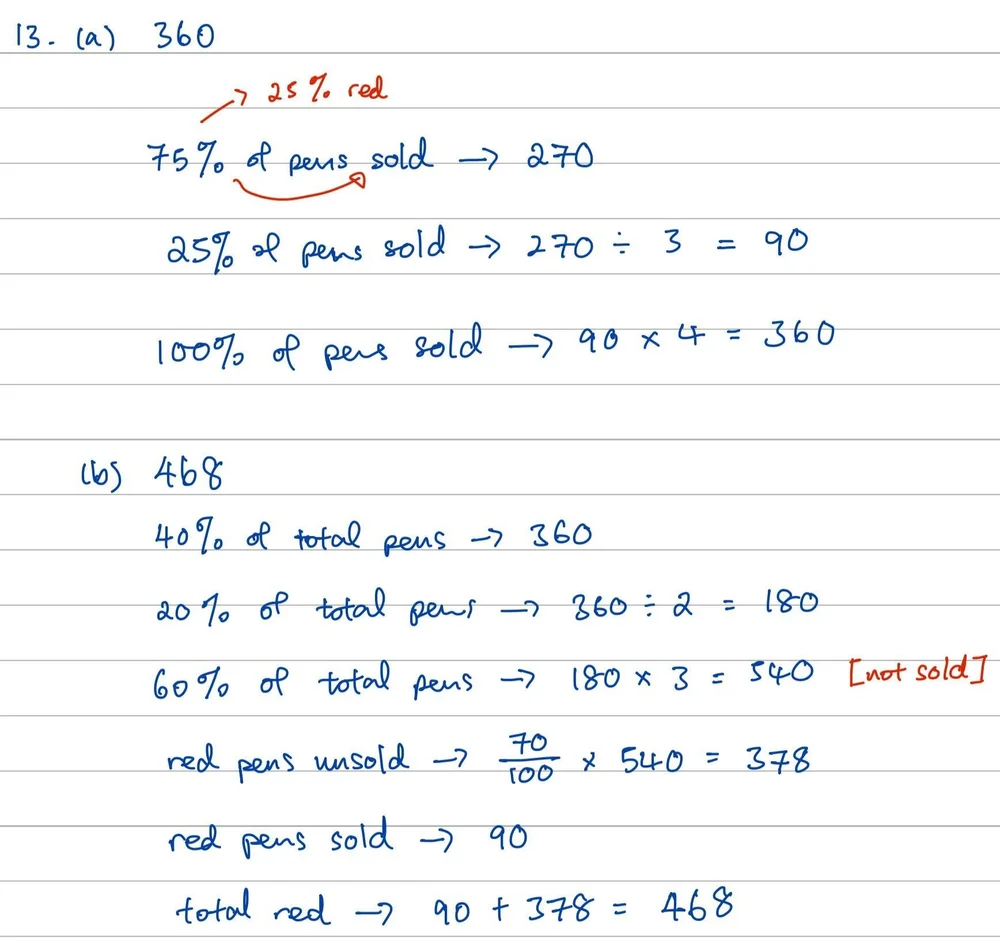 13. (a) 360
25% red
75% of pens sold → 270
25% of pens sold → 270 ÷ 3 = 90
100% of pens sold → 90 × 4 = 360
(b) 468
40% of total pens → 360
20% of total pens → 360 ÷ 2 = 180
60% of total pens → 180 × 3 = 540 [not sold]
red pens unsold → 70/100 × 540 = 378
red pens sold → 90
total red → 90 + 378 = 468